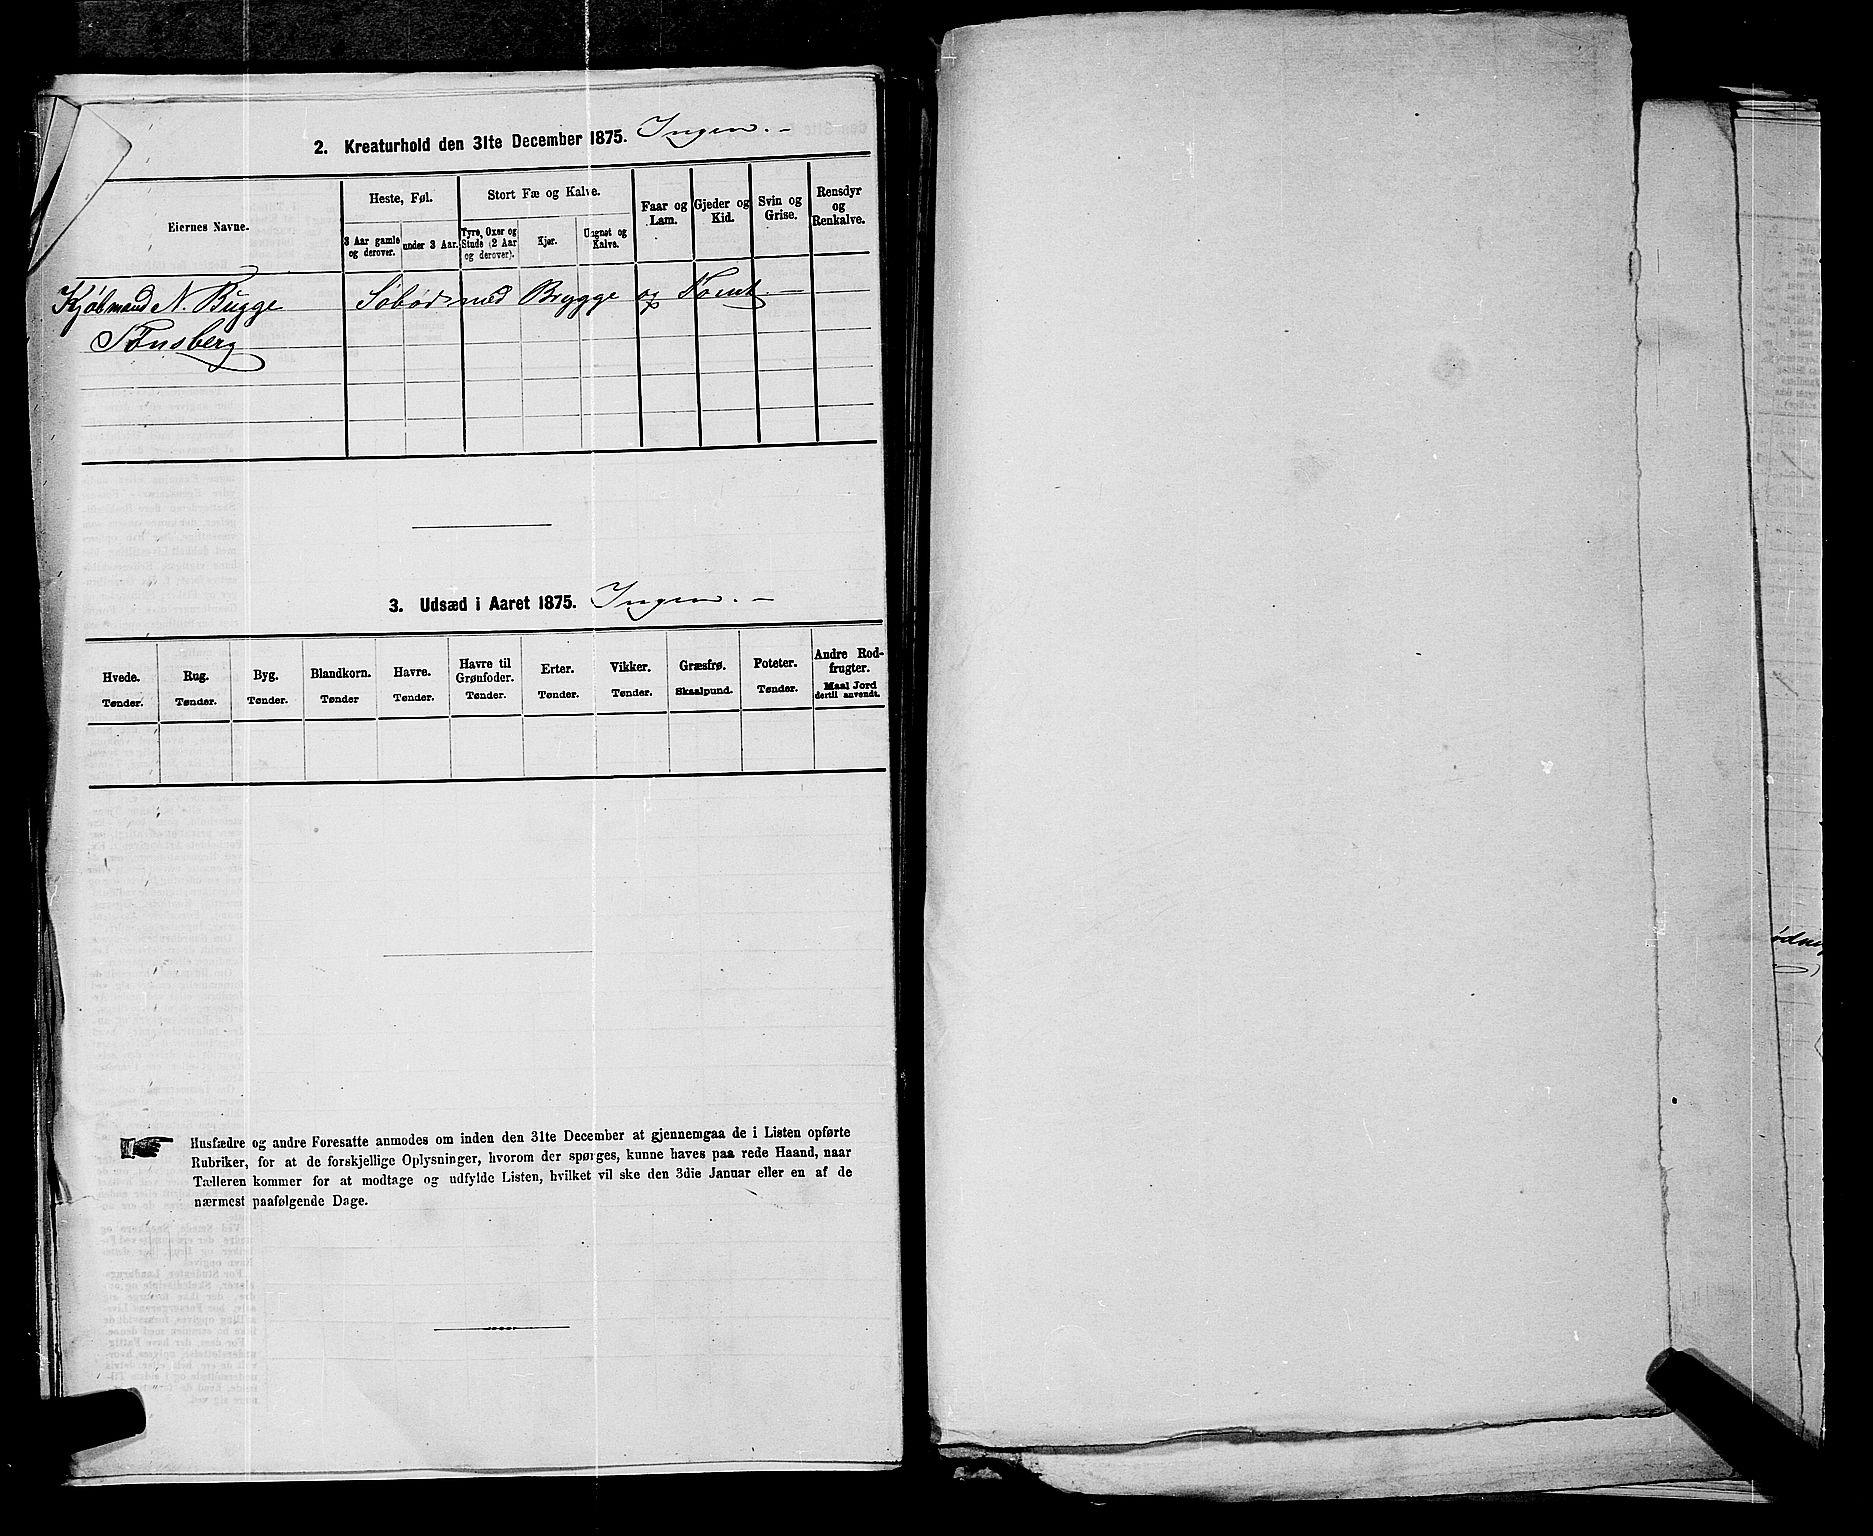 2. Kreaturhold den 31te December 1875. Ingen. –
Eiernes Navne.
Heste, Føl.
3 Aar gamle og derover.
under 3 Aar.
Stort Fæ og Kalve.
Tyre, Oxer og Stude (2 Aar og derover).
Kjør.
Ungnøt og Kalve.
Faar og Lam.
Gjeder og Kid.
Svin og Grise.
Rensdyr og Renkalve.
Kjøbmand N. Bugge Søbod med Brygge og Tomt. –
Tønsberg
3. Udsæd i Aaret 1875. Ingen. –
Hvede. Tønder.
Rug. Tønder.
Byg. Tønder.
Blandkorn. Tønder
Havre. Tønder.
Havre til Grønfoder. Tønder.
Erter. Tønder.
Vikker. Tønder.
Græsfrø. Skaalpund.
Poteter. Tønder.
Andre Rodfrugter. Maal Jord dertil anvendt.
Husfædre og andre Foresatte anmodes om inden den 31te December at gjennemgaa de i Listen opførte
Rubriker, for at de forskjellige Oplysninger, hvorom der spørges, kunne haves paa rede Haand, naar
Tælleren kommer for at modtage og udfylde Listen, hvilket vil ske den 3die Januar eller en af de
nærmest paafølgende Dage.